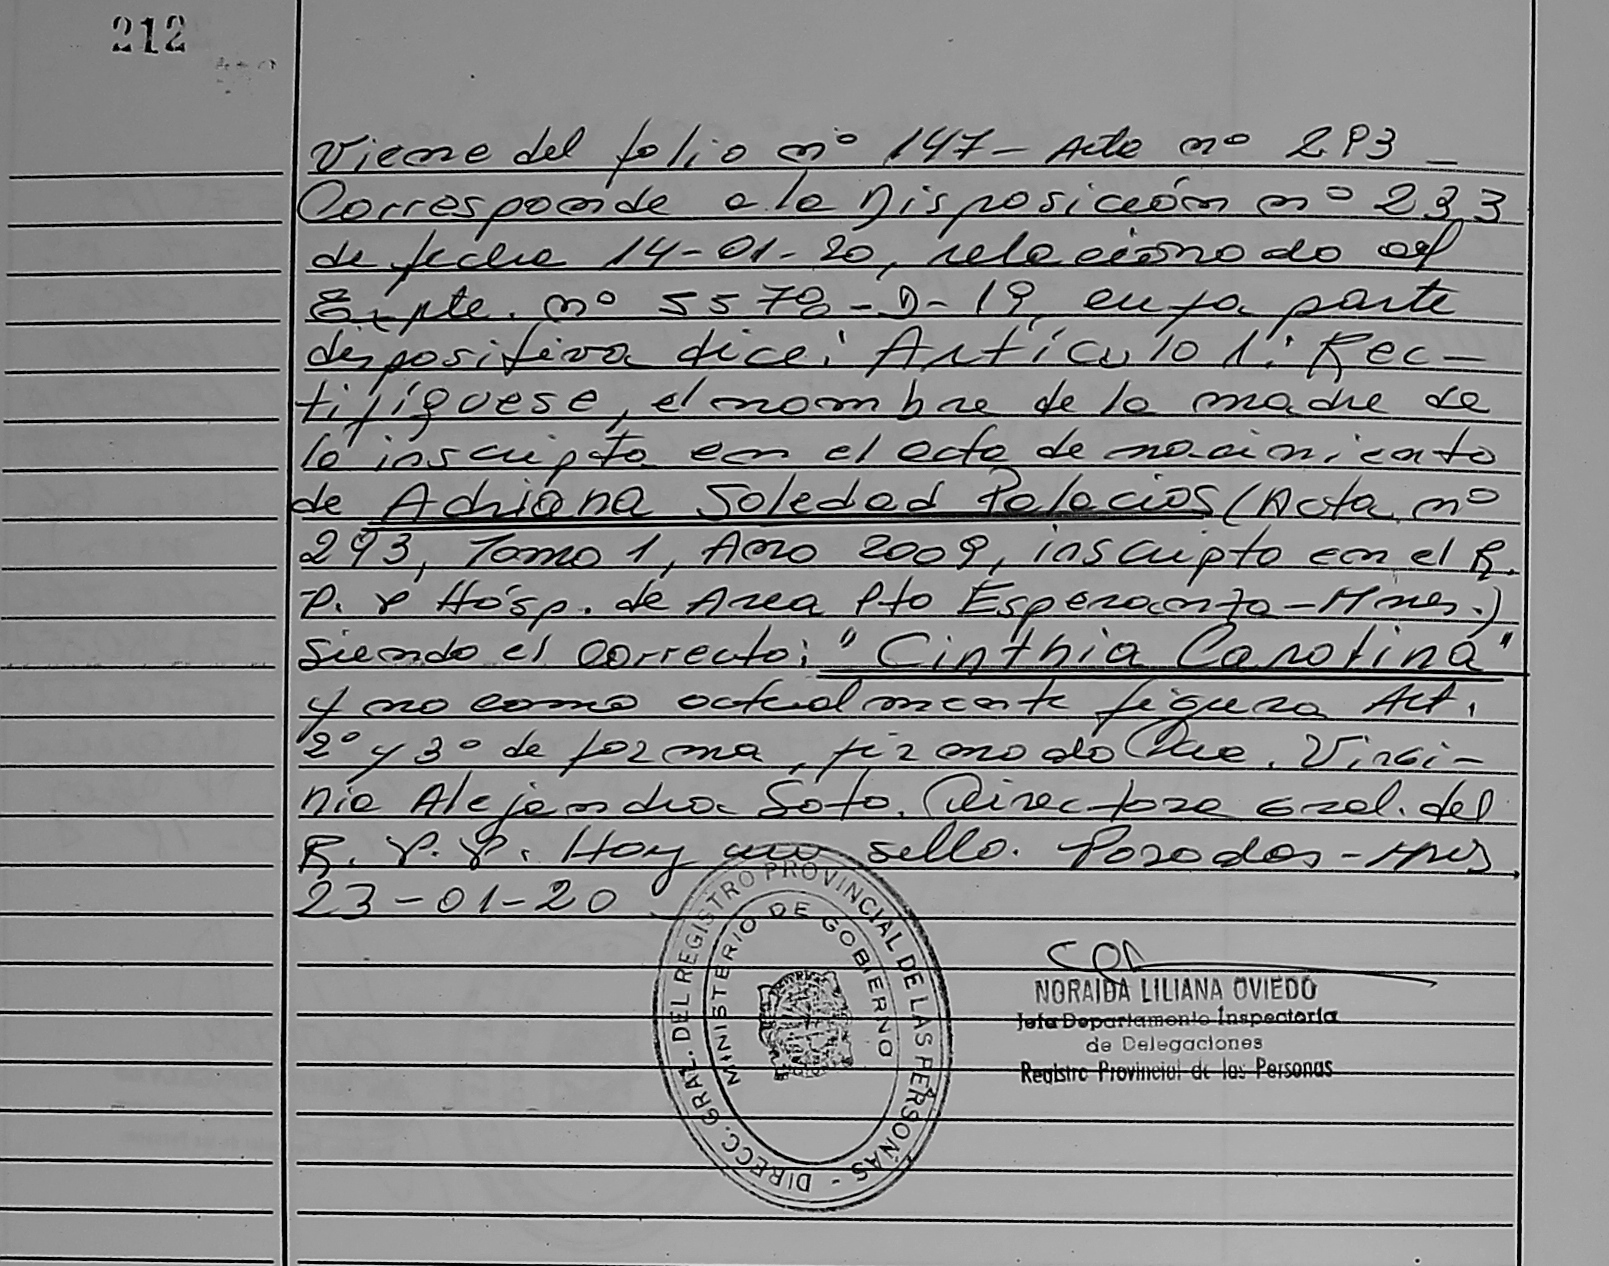 212
Viene del folio nº 147- Acta nº 293 -
Corresponde a la Disposición nº 233
de fecha 14-01-20, relacionado al
Expte. nº 5578-D-19, cuya parte
dispositiva dice: Artículo 1: Rec-
tifíquese, el nombre de la madre de
la inscripta en el acta de nacimiento
de Adriana Soledad Palacios (Acta nº
293, Tomo 1, Año 2009, inscripta en el R.
P. y Hosp. de Area Pto Esperanza-Mnes.)
siendo el correcto: "Cinthia Carolina"
y no como actualmente figura Art.
2º y 3º de forma, firmado Dra. Virgi-
nia Alejandra Soto. Directora Gral. del
R. P. P. Hay un sello. Posadas-Mnes
23-01-20
DIRECC. GRAL. DEL REGISTRO PROVINCIAL DE LAS PERSONAS -
MINISTERIO DE GOBIERNO
NORAIDA LILIANA OVIEDO
Jefa Departamento Inspectoría
de Delegaciones
Registro Provincial de las Personas